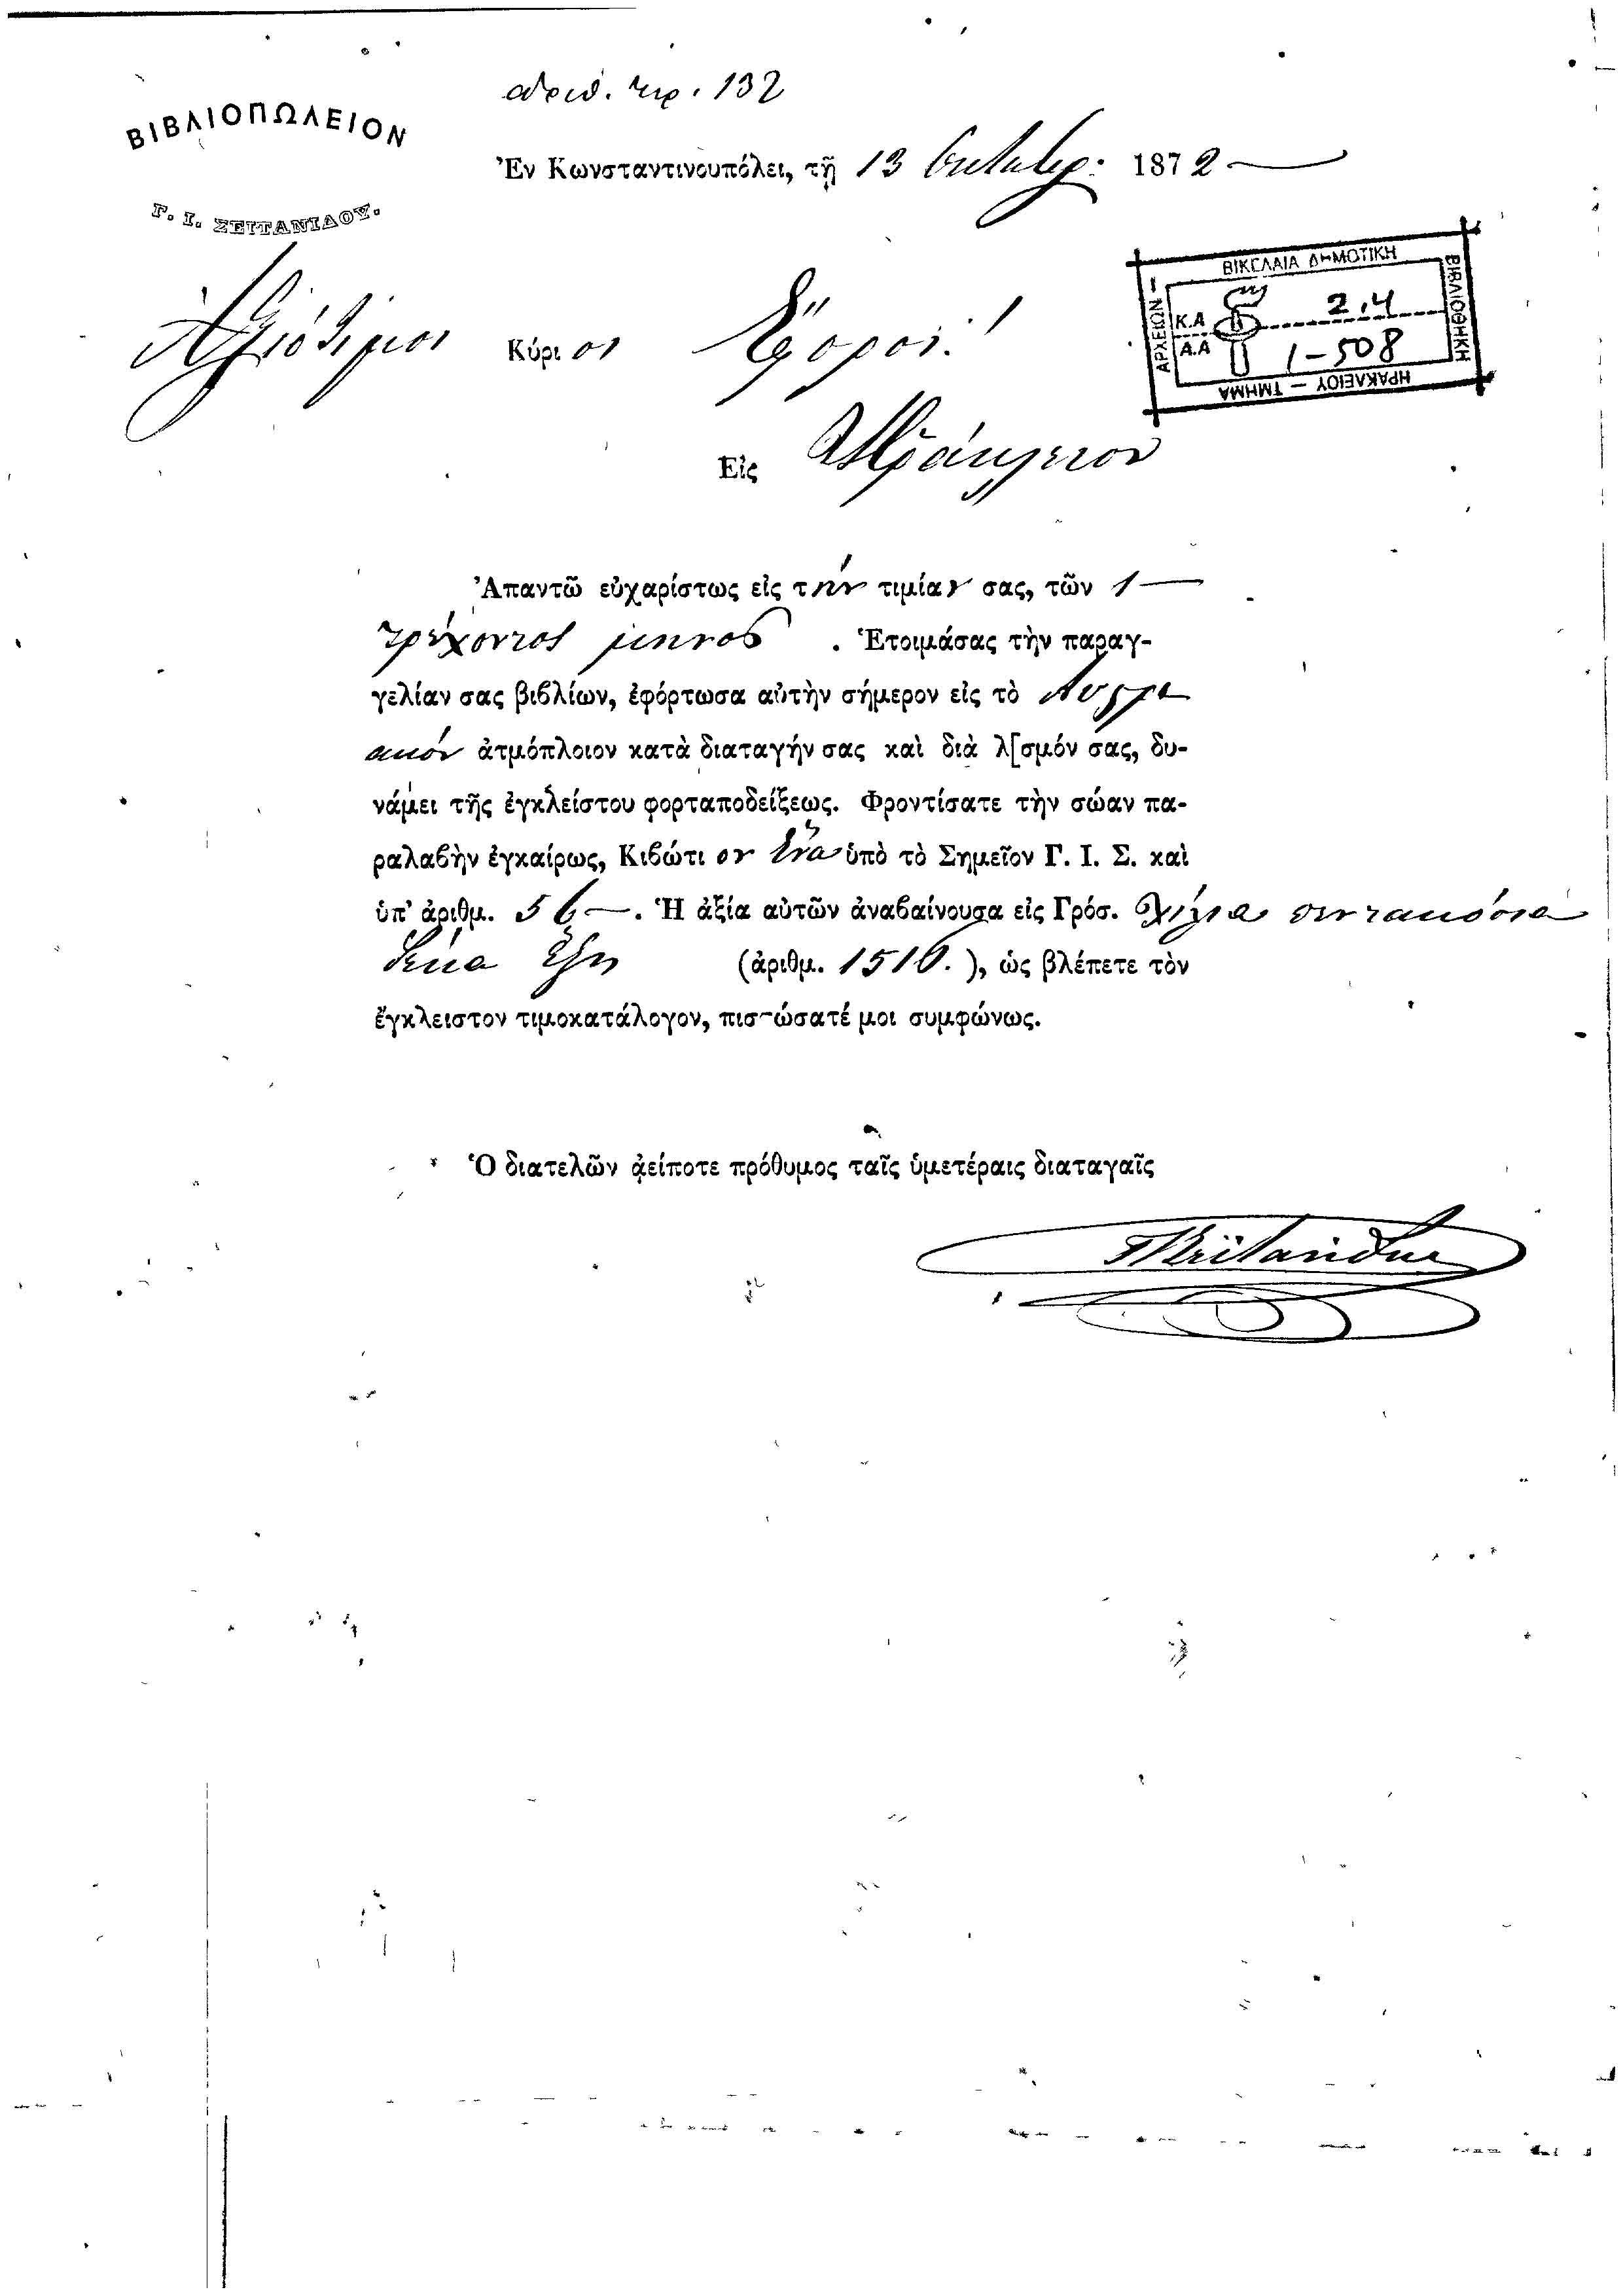 ἀριθ. πρ. 132
ΒΙΒΛΙΟΠΩΛΕΙΟΝ
Γ. Ι. ΣΕΪΤΑΝΙΔΟΥ.
Ἐν Κωνσταντινουπόλει, τῇ 13 Ὀκτωβρ: 1872
ΒΙΚΕΛΑΙΑ ΔΗΜΟΤΙΚΗ
ΒΙΒΛΙΟΘΗΚΗ
ΗΡΑΚΛΕΙΟΥ — ΤΜΗΜΑ
ΑΡΧΕΙΩΝ —
Κ.Α 2.4
Α.Α 1-508
Ἀξιότιμοι Κύριοι Ἔφοροι!
Εἰς Ἡράκλειον
Ἀπαντῶ εὐχαρίστως εἰς τὴν τιμίαν σας, τῶν 1 —
τρέχοντος μηνός . Ἑτοιμάσας τὴν παραγ-
γελίαν σας βιβλίων, ἐφόρτωσα αὐτὴν σήμερον εἰς τὸ Αὐστρι
ακόν ἀτμόπλοιον κατὰ διαταγήν σας καὶ διὰ λ[σμόν σας, δυ-
νάμει τῆς ἐγκλείστου φορταποδείξεως. Φροντίσατε τὴν σώαν πα-
ραλαβὴν ἐγκαίρως, Κιβώτιον ἕνα ὑπὸ τὸ Σημεῖον Γ. Ι. Σ. καὶ
ὑπ' ἀριθμ. 56 —. Ἡ ἀξία αὐτῶν ἀναβαίνουσα εἰς Γρόσ. χίλια πεντακόσια
δέκα ἕξη (ἀριθμ. 1516.), ὡς βλέπετε τὸν
ἔγκλειστον τιμοκατάλογον, πιστώσατέ μοι συμφώνως.
Ὁ διατελῶν ἀείποτε πρόθυμος ταῖς ὑμετέραις διαταγαῖς
ΓΙΣεϊτανίδης